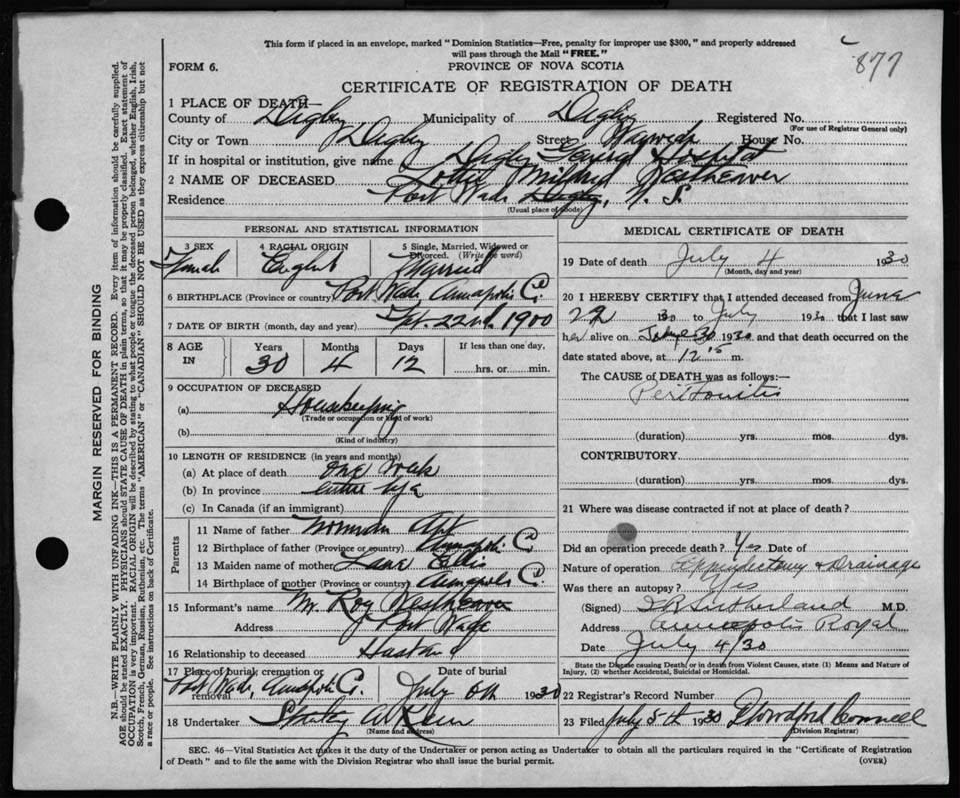 This form if placed in an envelope, marked "Dominion Statistics—Free, penalty for improper use $300," and properly addressed
will pass through the Mail "FREE."
877
FORM 6.
PROVINCE OF NOVA SCOTIA
CERTIFICATE OF REGISTRATION OF DEATH
1 PLACE OF DEATH—
County of Digby Municipality of Digby Registered No.
(For use of Registrar General only)
City or Town Digby Street Warwick House No.
If in hospital or institution, give name Digby General Hospital
2 NAME OF DECEASED Lottie Mildred Weatherver
Residence Port Wade Digby, N. S.
(Usual place of abode)
PERSONAL AND STATISTICAL INFORMATION
3 SEX Female
4 RACIAL ORIGIN English
5 Single, Married, Widowed or Divorced. (Write the word) Married
6 BIRTHPLACE (Province or country) Port Wade Annapolis Co.
7 DATE OF BIRTH (month, day and year) Spt. 22nd. 1900
8 AGE IN Years 30 Months 4 Days 12 If less than one day, hrs. or min.
9 OCCUPATION OF DECEASED
(a) Housekeeping
(Trade or occupation or kind of work)
(b)
(Kind of industry)
10 LENGTH OF RESIDENCE (in years and months)
(a) At place of death one week
(b) In province entire life
(c) In Canada (if an immigrant)
Parents
11 Name of father Norman Apt
12 Birthplace of father (Province or country) Annapolis C
13 Maiden name of mother Ellis
14 Birthplace of mother (Province or country) Annapolis Co
15 Informant's name Mr. Roy
Address Port Wade
16 Relationship to deceased
17 Place of burial cremation or removal Port Wade, Annapolis Co.
Date of burial July 6th 1930
18 Undertaker Stanley
(Name and address)
MEDICAL CERTIFICATE OF DEATH
19 Date of death July 4 1930
(Month, day and year)
20 I HEREBY CERTIFY that I attended deceased from June
22 30 to July 1930 that I last saw
her alive on 30 1930 and that death occurred on the
date stated above, at 12.15 m.
The CAUSE of DEATH was as follows:—
Peritonitis
(duration) yrs. mos. dys.
CONTRIBUTORY
(duration) yrs. mos. dys.
21 Where was disease contracted if not at place of death?
Did an operation precede death? Yes Date of
Nature of operation Appendectomy & Drainage
Was there an autopsy? Yes
(Signed) Sutherland M.D.
Address Annapolis Royal
Date July 4/30
State the Disease causing Death, or in death from Violent Causes, state (1) Means and Nature of
Injury, (2) whether Accidental, Suicidal or Homicidal.
22 Registrar's Record Number
23 Filed July 5th 1930 Connell
(Division Registrar)
SEC. 46—Vital Statistics Act makes it the duty of the Undertaker or person acting as Undertaker to obtain all the particulars required in the "Certificate of Registration
of Death" and to file the same with the Division Registrar who shall issue the burial permit.
(OVER)
MARGIN RESERVED FOR BINDING
N.B.—WRITE PLAINLY WITH UNFADING INK—THIS IS A PERMANENT RECORD. Every item of information should be carefully supplied.
AGE should be stated EXACTLY. PHYSICIANS should STATE CAUSE OF DEATH in plain terms, so that it may be properly classified. Exact statement of
OCCUPATION is very important. RACIAL ORIGIN will be described by stating to what people or tongue the deceased person belonged, whether English, Irish,
Scotch, French, German, Russian, Ruthenian, etc. The terms "AMERICAN" or "CANADIAN" SHOULD NOT BE USED as they express citizenship but not
a race or people. See instructions on back of Certificate.